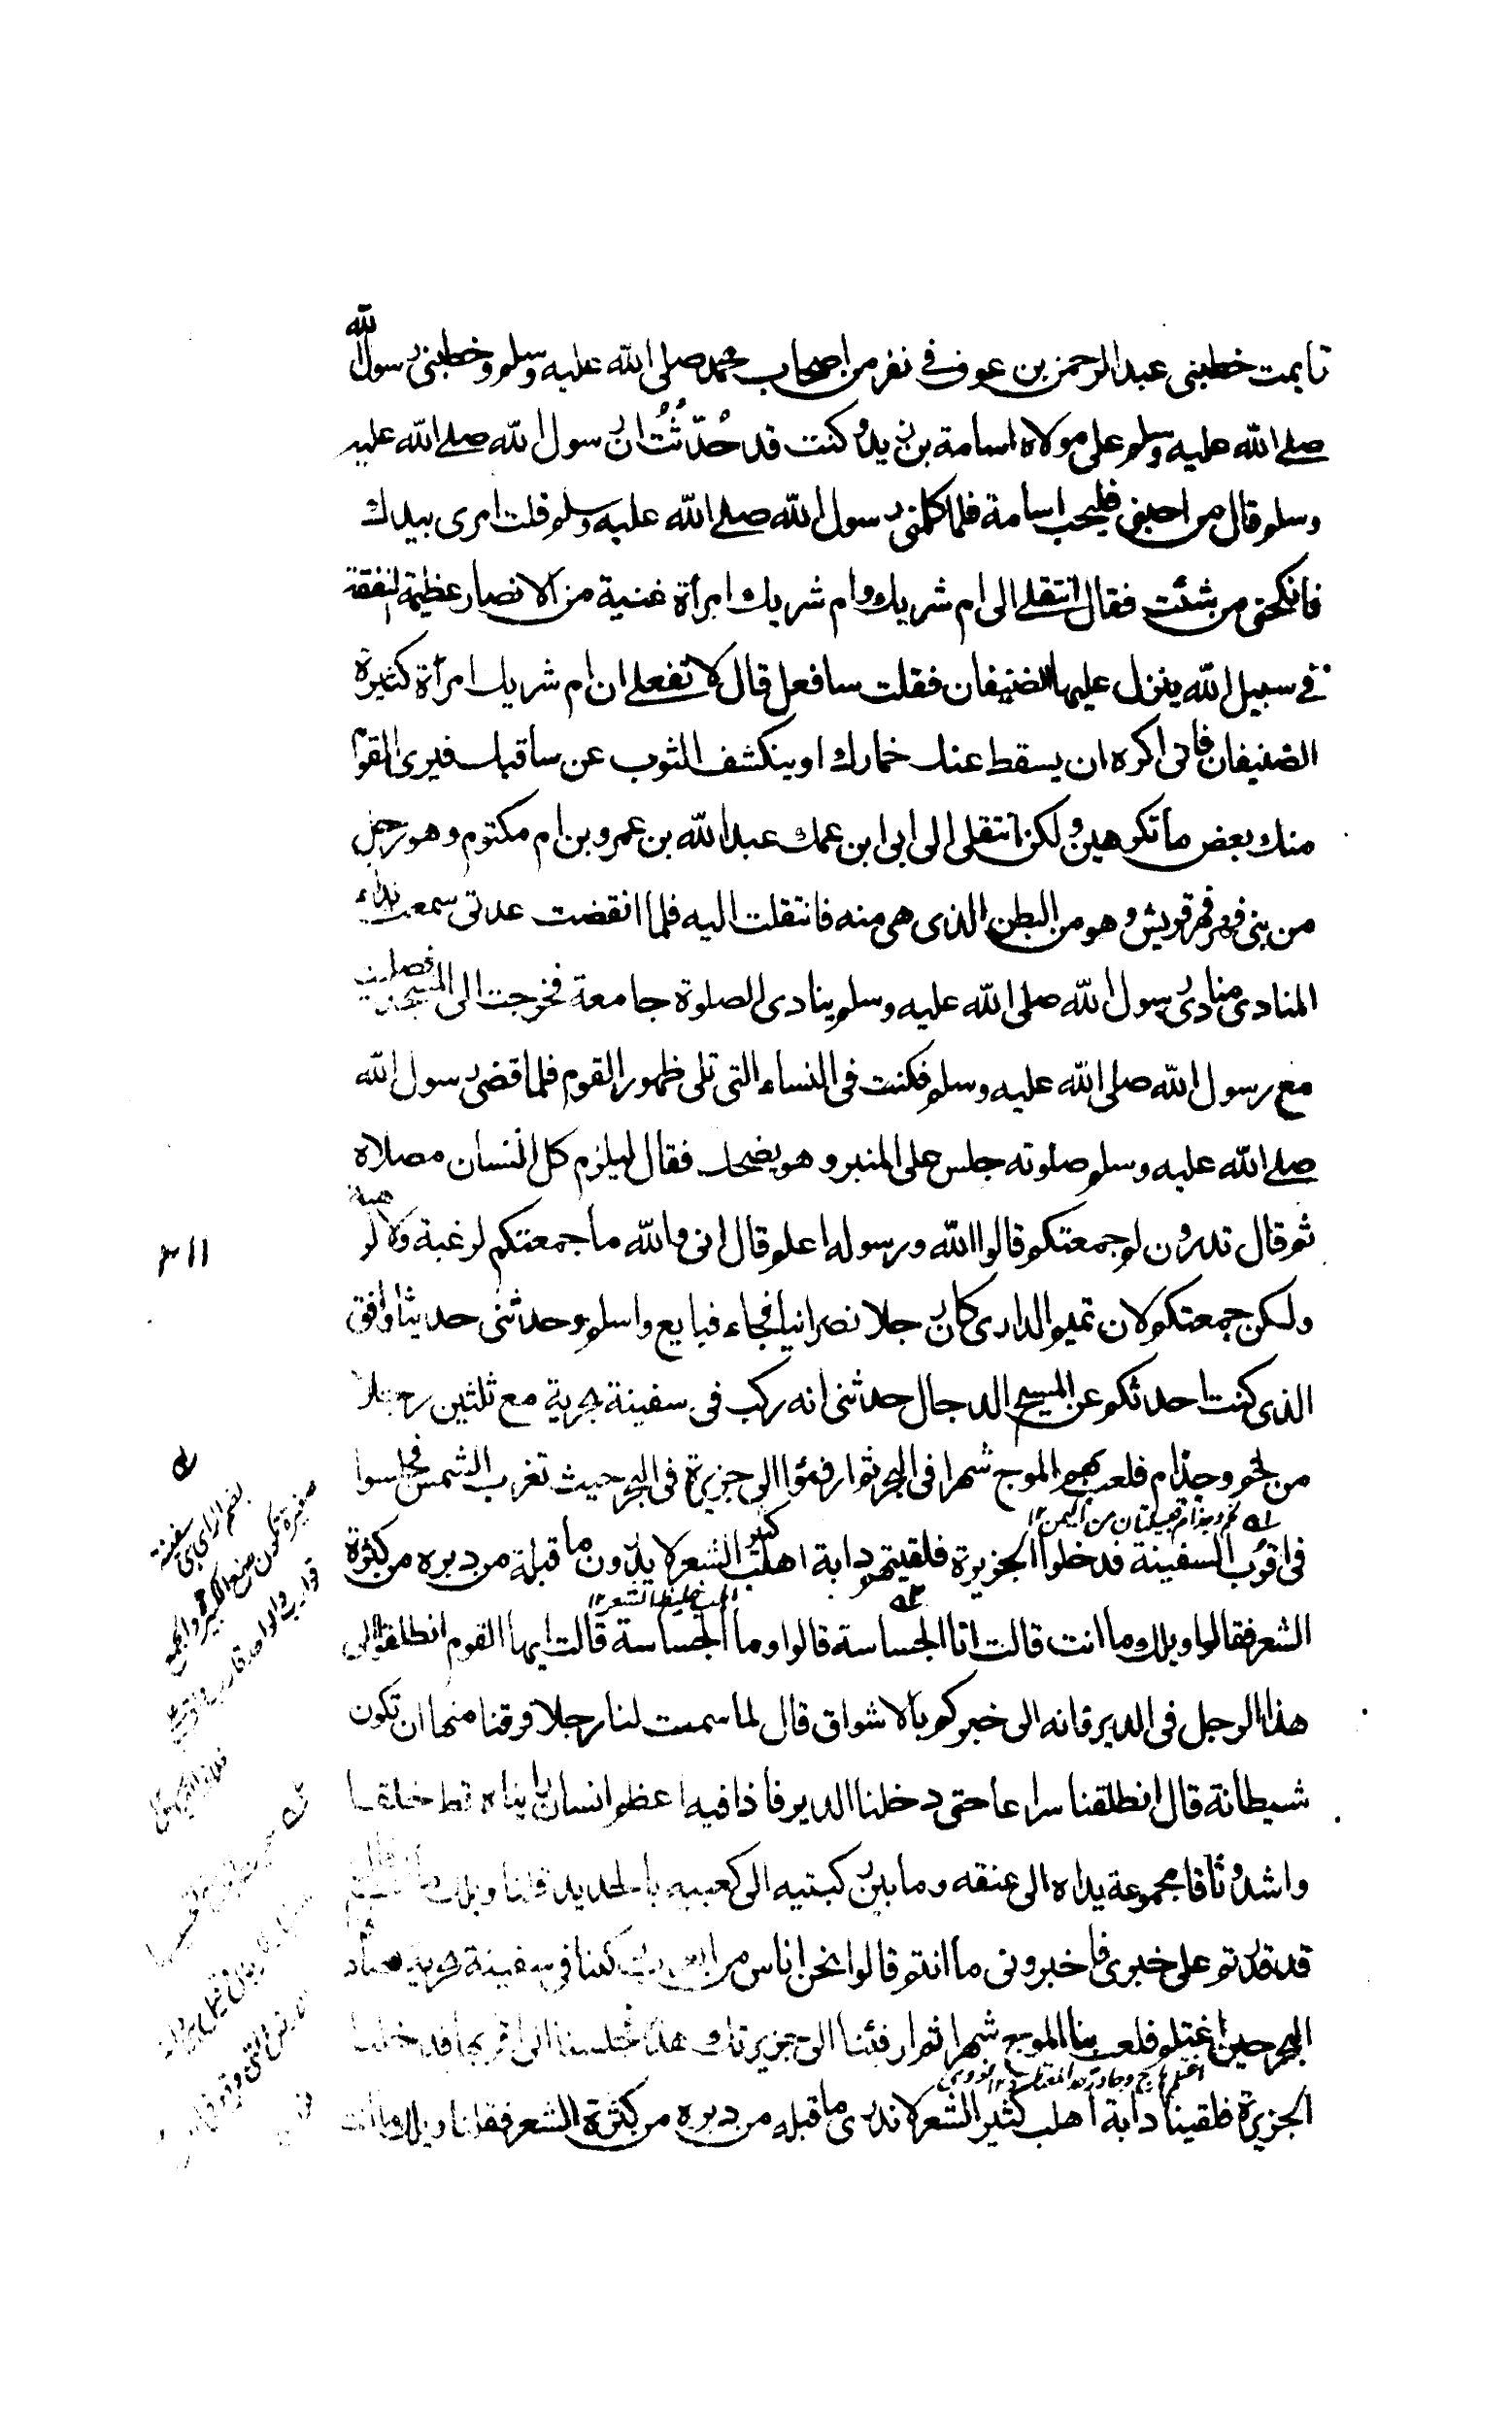 تايمت خطبنى عبد الرحمن بن عوف فى نفر من اصحاب محمد صلى الله عليه وسلم وخطبنى رسول الله
صلى الله عليه وسلم على مولاه اسامة بن زيد وكنت قد حُدّثتُ ان رسول الله صلى الله عليه
وسلم قال من احبنى فليحب اسامة فلما كلمنى رسول الله صلى الله عليه وسلم قلت امرى بيدك
فانكحنى من شئت فقال انتقلى الى ام شريك وام شريك امرأة غنية من الانصار عظيمة النفقة
فى سبيل الله ينزل عليها الضيفان فقلت سافعل قال لا تفعلى ان ام شريك امرأة كثيرة
الضيفان فانى اكره ان يسقط عنك خمارك او ينكشف الثوب عن ساقيك فيرى القوم
منك بعض ما تكرهين ولكن انتقلى الى ابن عمك عبد الله بن عمرو بن ام مكتوم وهو رجل
من بنى فهر فهر قريش وهو من البطن الذى هى منه فانتقلت اليه فلما انقضت عدتى سمعت نداء
المنادى منادى رسول الله صلى الله عليه وسلم ينادى الصلوة جامعة فخرجت الى المسجد فصليت
مع رسول الله صلى الله عليه وسلم فكنت فى النساء التى تلى ظهور القوم فلما قضى رسول الله
صلى الله عليه وسلم صلوته جلس على المنبر وهو يضحك فقال ليلزم كل انسان مصلاه
ثم قال تدرون لم جمعتكم قالوا الله ورسوله اعلم قال انى والله ما جمعتكم لرغبة ولا لرهبة
ولكن جمعتكم لان تميم الدارى كان رجلا نصرانيا فجاء فبايع واسلم وحدثنى حديثا وافق
الذى كنت احدثكم عن المسيح الدجال حدثنى انه ركب فى سفينة بحرية مع ثلثين رجلا
من لخم وجذام فلعب بهم الموج شهرا فى البحر ثم ارفئوا الى جزيرة فى البحر حيث تغرب الشمس فجلسوا
لخم وجذام قبيلتان من اليمن ١٢
فى اقرُب السفينة فدخلوا الجزيرة فلقيتهم دابة اهلب كثير الشعر لا يدرون ما قبله من دبره من كثرة
اهلب غليظ الشعر ١٢
الشعر فقالوا ويلك وما انت قالت انا الجساسة قالوا وما الجساسة قالت ايها القوم انطلقوا الى
هذا الرجل فى الدير فانه الى خبركم بالاشواق قال لما سمت لنا رجلا فرقنا منها ان تكون
شيطانة قال انطلقنا سراعا حتى دخلنا الدير فاذا فيه اعظم انسان رايناه قط خلقا
واشده وثاقا مجموعة يداه الى عنقه وما بين ركبتيه الى كعبيه بالحديد قلنا ويلك
قد قدرتم على خبرى فاخبرونى ما انتم قالوا نحن اناس من العرب ركبنا فى سفينة بحرية فصادفنا
البحر حين اغتلم فلعب بنا الموج شهرا ثم ارفئنا الى جزيرتك هذه فجلسنا فى اقربها فدخلنا
اغتلم هاج وجاوز حد المعتاد ١٢ نووى
الجزيرة فلقينا دابة اهلب كثير الشعر لا ندرى ما قبله من دبره من كثرة الشعر فقلنا ويلك ما انت